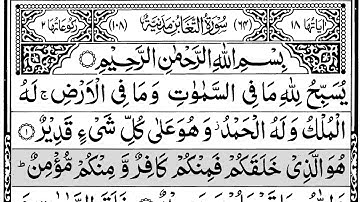 اٰيَاتُهَا ١٨ (٦٤) سُوْرَةُ التَّغَابُنِ مَدَنِيَّةٌ (١٠٨) رُكُوْعَاتُهَا ٢
بِسْمِ اللهِ الرَّحْمٰنِ الرَّحِيْمِ
يُسَبِّحُ لِلّٰهِ مَا فِي السَّمٰوٰتِ وَمَا فِي الْاَرْضِ ۚ لَهُ
الْمُلْكُ وَلَهُ الْحَمْدُ ؗ وَهُوَ عَلٰى كُلِّ شَيْءٍ قَدِيْرٌ ۝١
هُوَ الَّذِيْ خَلَقَكُمْ فَمِنْكُمْ كَافِرٌ وَّمِنْكُمْ مُّؤْمِنٌ ؕ